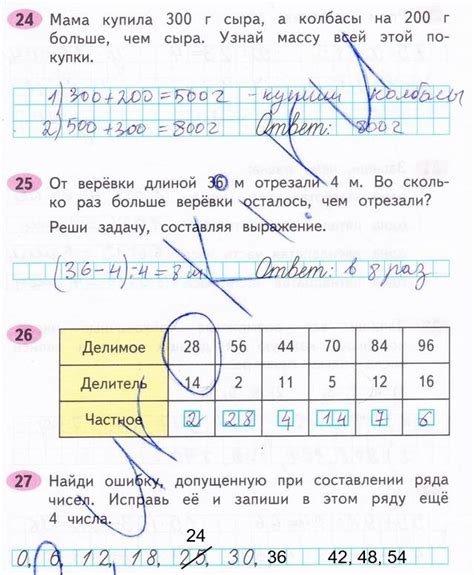 24 Мама купила 300 г сыра, а колбасы на 200 г
больше, чем сыра. Узнай массу всей этой по-
купки.
1) 300+200=500г – купили колбасы
2) 500+300=800г Ответ: 800г
25 От верёвки длиной 36 м отрезали 4 м. Во сколь-
ко раз больше верёвки осталось, чем отрезали?
Реши задачу, составляя выражение.
(36-4):4=8 м Ответ: в 8 раз
26 Делимое 28 56 44 70 84 96
Делитель 14 2 11 5 12 16
Частное 2 28 4 14 7 6
27 Найди ошибку, допущенную при составлении ряда
чисел. Исправь её и запиши в этом ряду ещё
4 числа.
24
0, 6, 12, 18, 25, 30, 36 42, 48, 54